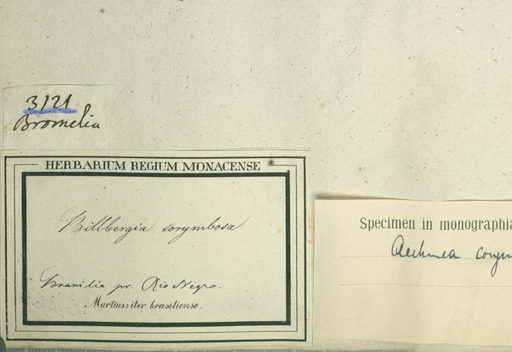 3121
Bromelia
HERBARIUM REGIUM MONACENSE
Billbergia corymbosa
Brasilia pr. Rio Negro.
Martius: iter brasiliense.
Specimen in monographia
Aechmea corym